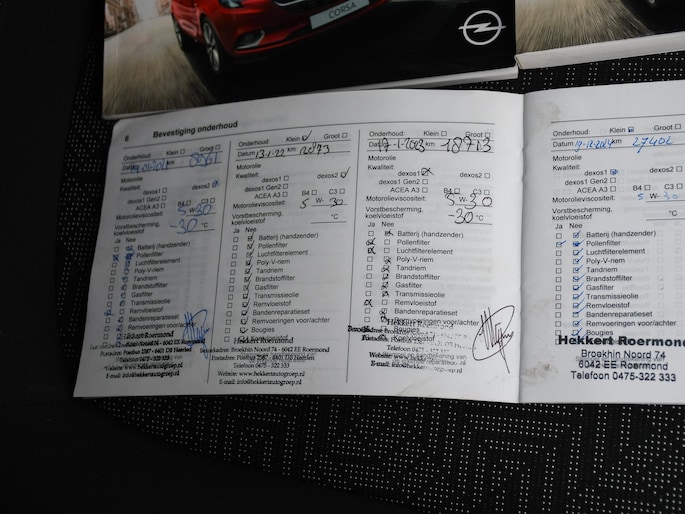 CORSA
6 Bevestiging onderhoud
Onderhoud: Klein Groot
Datum km
Motorolie
Kwaliteit:
dexos1 dexos2
dexos1 Gen2
ACEA A3 B4 C3
Motorolieviscositeit: 5 W- 30
Vorstbescherming,
koelvloeistof -30 °C
Ja Nee
Batterij (handzender)
Pollenfilter
Luchtfilterelement
Poly-V-riem
Tandriem
Brandstoffilter
Gasfilter
Transmissieolie
Remvloeistof
Bandenreparatieset
Remvoeringen voor/achter
Bougies
Hekkert Roermond
Postbus 2387 - 6401 DJ Heerlen
Telefoon 0475 - 322 333
Website: www.hekkertautogroep.nl
E-mail: info@hekkertautogroep.nl
Onderhoud: Klein Groot
Datum 13-1-22 km
Motorolie
Kwaliteit:
dexos1 dexos2
dexos1 Gen2
ACEA A3 B4 C3
Motorolieviscositeit: 5 W- 30
Vorstbescherming,
koelvloeistof °C
Ja Nee
Batterij (handzender)
Pollenfilter
Luchtfilterelement
Poly-V-riem
Tandriem
Brandstoffilter
Gasfilter
Transmissieolie
Remvloeistof
Bandenreparatieset
Remvoeringen voor/achter
Bougies
Hekkert Roermond
Bezoekadres: Broekhin Noord 74 - 6042 EE Roermond
Postadres: Postbus 2387 - 6401 DJ Heerlen
Telefoon 0475 - 322 333
Website: www.hekkertautogroep.nl
E-mail: info@hekkertautogroep.nl
Onderhoud: Klein Groot
Datum 17-1-2023 km 18713
Motorolie
Kwaliteit:
dexos1 dexos2
dexos1 Gen2
ACEA A3 B4 C3
Motorolieviscositeit: 5 W- 30
Vorstbescherming,
koelvloeistof -30 °C
Ja Nee
Batterij (handzender)
Pollenfilter
Luchtfilterelement
Poly-V-riem
Tandriem
Brandstoffilter
Gasfilter
Transmissieolie
Remvloeistof
Bandenreparatieset
Remvoeringen voor/achter
Bougies
Onderhoud: Klein
Datum km
Motorolie
Kwaliteit:
dexos1 dexos2
dexos1 Gen2
ACEA A3 B4 C3
Motorolieviscositeit: 5 W- 30
Vorstbescherming,
koelvloeistof °C
Ja Nee
Batterij (handzender)
Pollenfilter
Luchtfilterelement
Poly-V-riem
Tandriem
Brandstoffilter
Gasfilter
Transmissieolie
Remvloeistof
Bandenreparatieset
Remvoeringen voor/achter
Bougies
Hekkert Roermond
Broekhin Noord 74
6042 EE Roermond
Telefoon 0475-322 333